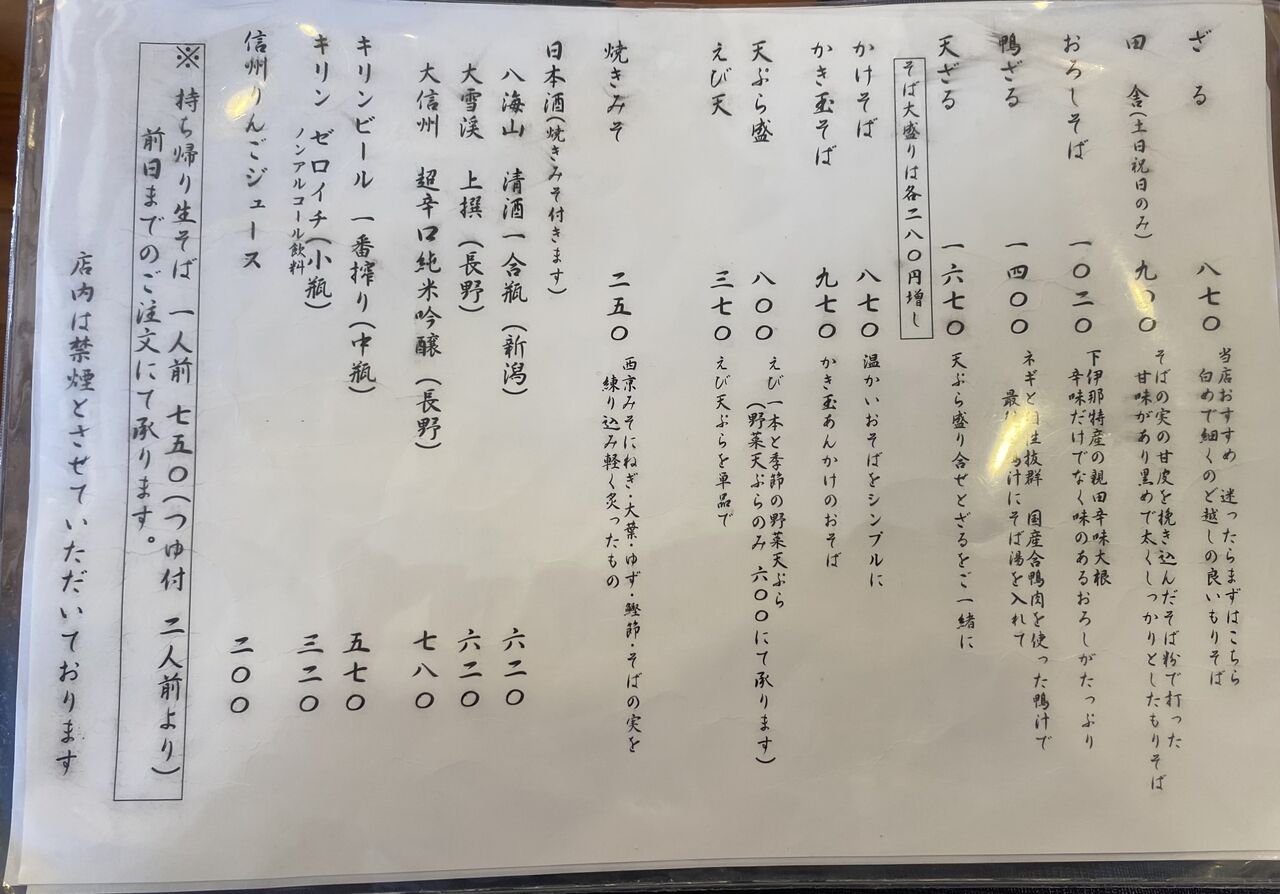 ざる 八七〇
当店おすすめ 迷ったらまずはこちら
白めで細くのど越しの良いもりそば
田舎(土日祝日のみ) 九〇〇
そばの実の甘皮を挽き込んだそば粉で打った
甘味があり黒めで太くしっかりとしたもりそば
おろしそば 一〇二〇
下伊那特産の親田辛味大根
辛味だけでなく味のあるおろしがたっぷり
鴨ざる 一四〇〇
ネギと 性抜群 国産合鴨肉を使った鴨汁で
最 汁にそば湯を入れて
天ざる 一六七〇
天ぷら盛り合せとざるをご一緒に
そば大盛りは各二八〇円増し
かけそば 八七〇 温かいおそばをシンプルに
かき玉そば 九七〇 かき玉あんかけのおそば
天ぷら盛 八〇〇
えび一本と季節の野菜天ぷら
(野菜天ぷらのみ 六〇〇にて承ります)
えび天 三七〇 えび天ぷらを単品で
焼きみそ 二五〇
西京みそにねぎ・大葉・ゆず・鰹節・そばの実を
練り込み軽く炙ったもの
日本酒(焼きみそ付きます)
八海山 清酒一合瓶(新潟) 六二〇
大雪渓 上撰(長野) 六二〇
大信州 超辛口純米吟醸(長野) 七八〇
キリンビール 一番搾り(中瓶) 五七〇
キリン ゼロイチ(小瓶) 三二〇
ノンアルコール飲料
信州りんごジュース 二〇〇
※ 持ち帰り生そば 一人前 七五〇(つゆ付 二人前より)
前日までのご注文にて承ります。
店内は禁煙とさせていただいております